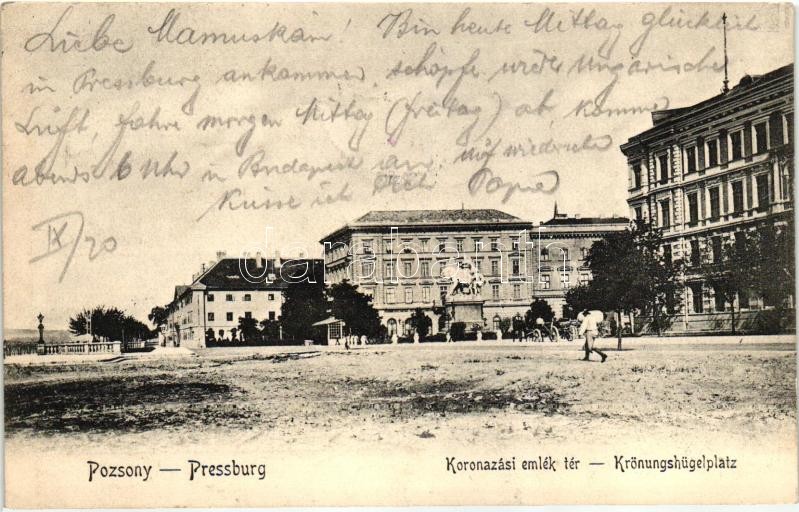 Liebe Mamuskám! Bin heute Mittag glücklich
in Pressburg ankommen, schöpfe wieder Ungarische
Luft, fahre morgen Mittag (Freitag) ab, komme
abends 6 Uhr in Budapest an. Auf wiedersehen
Küsse ich Dich
IX/20
darabanth
Pozsony — Pressburg
Koronazási emlék tér — Krönungshügelplatz